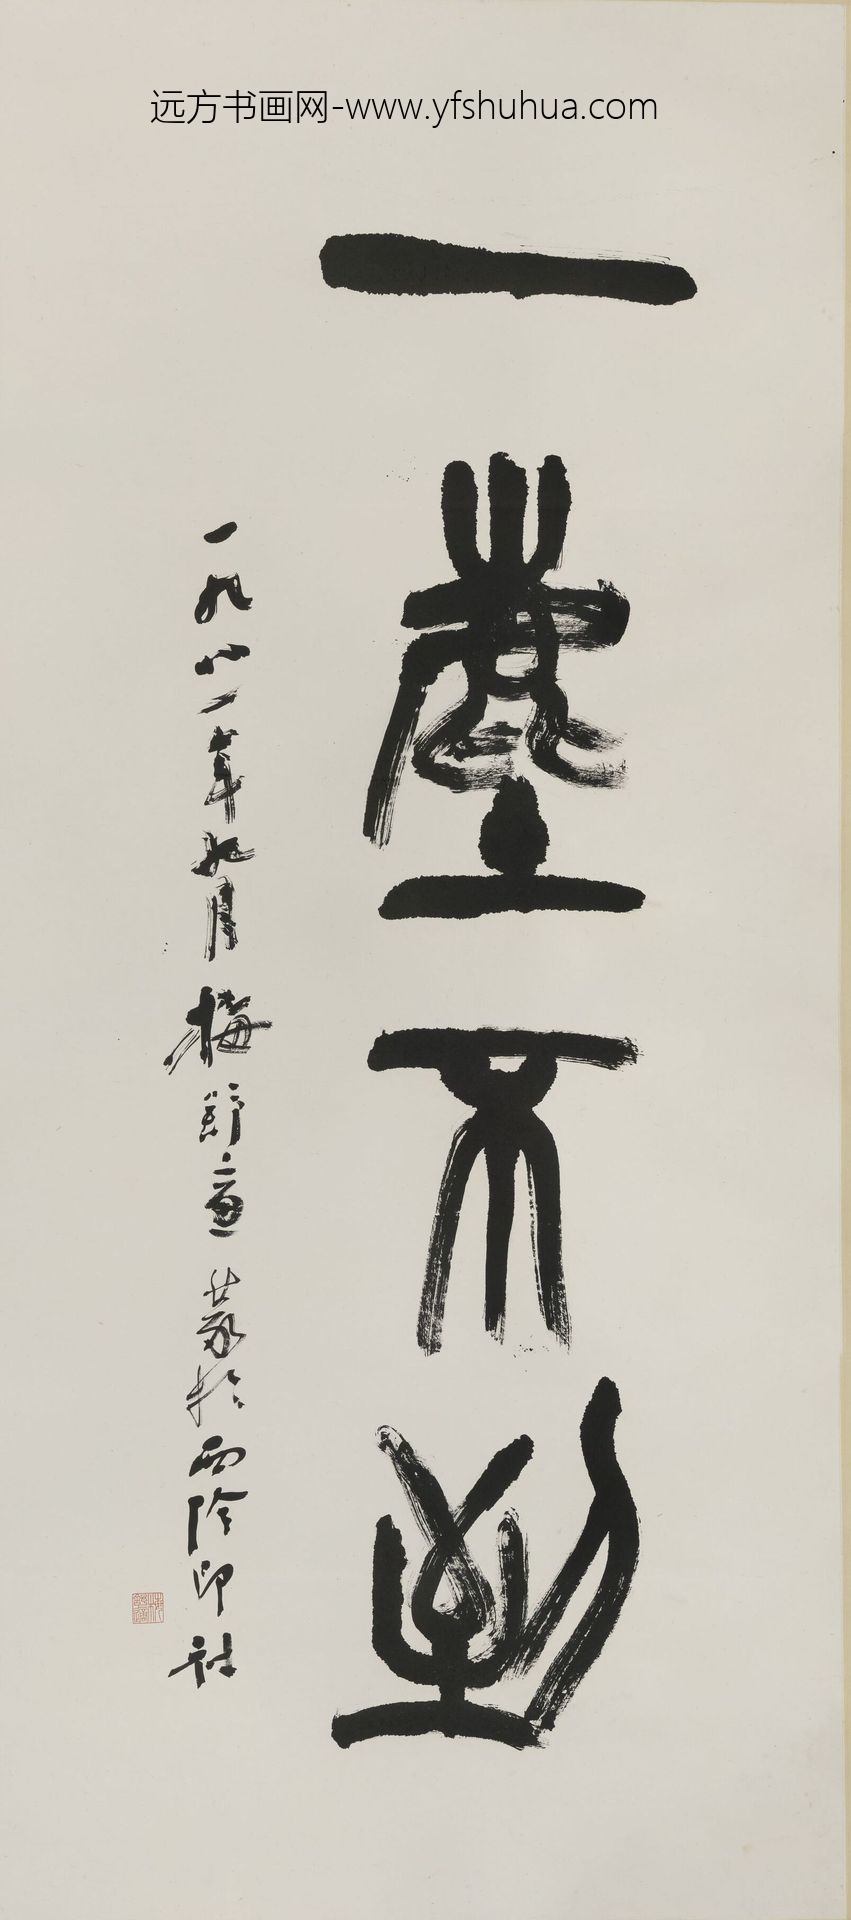 远方书画网-www.yfshuhua.com
一塵不到
一九八一年九月梅舒適篆於西泠印社